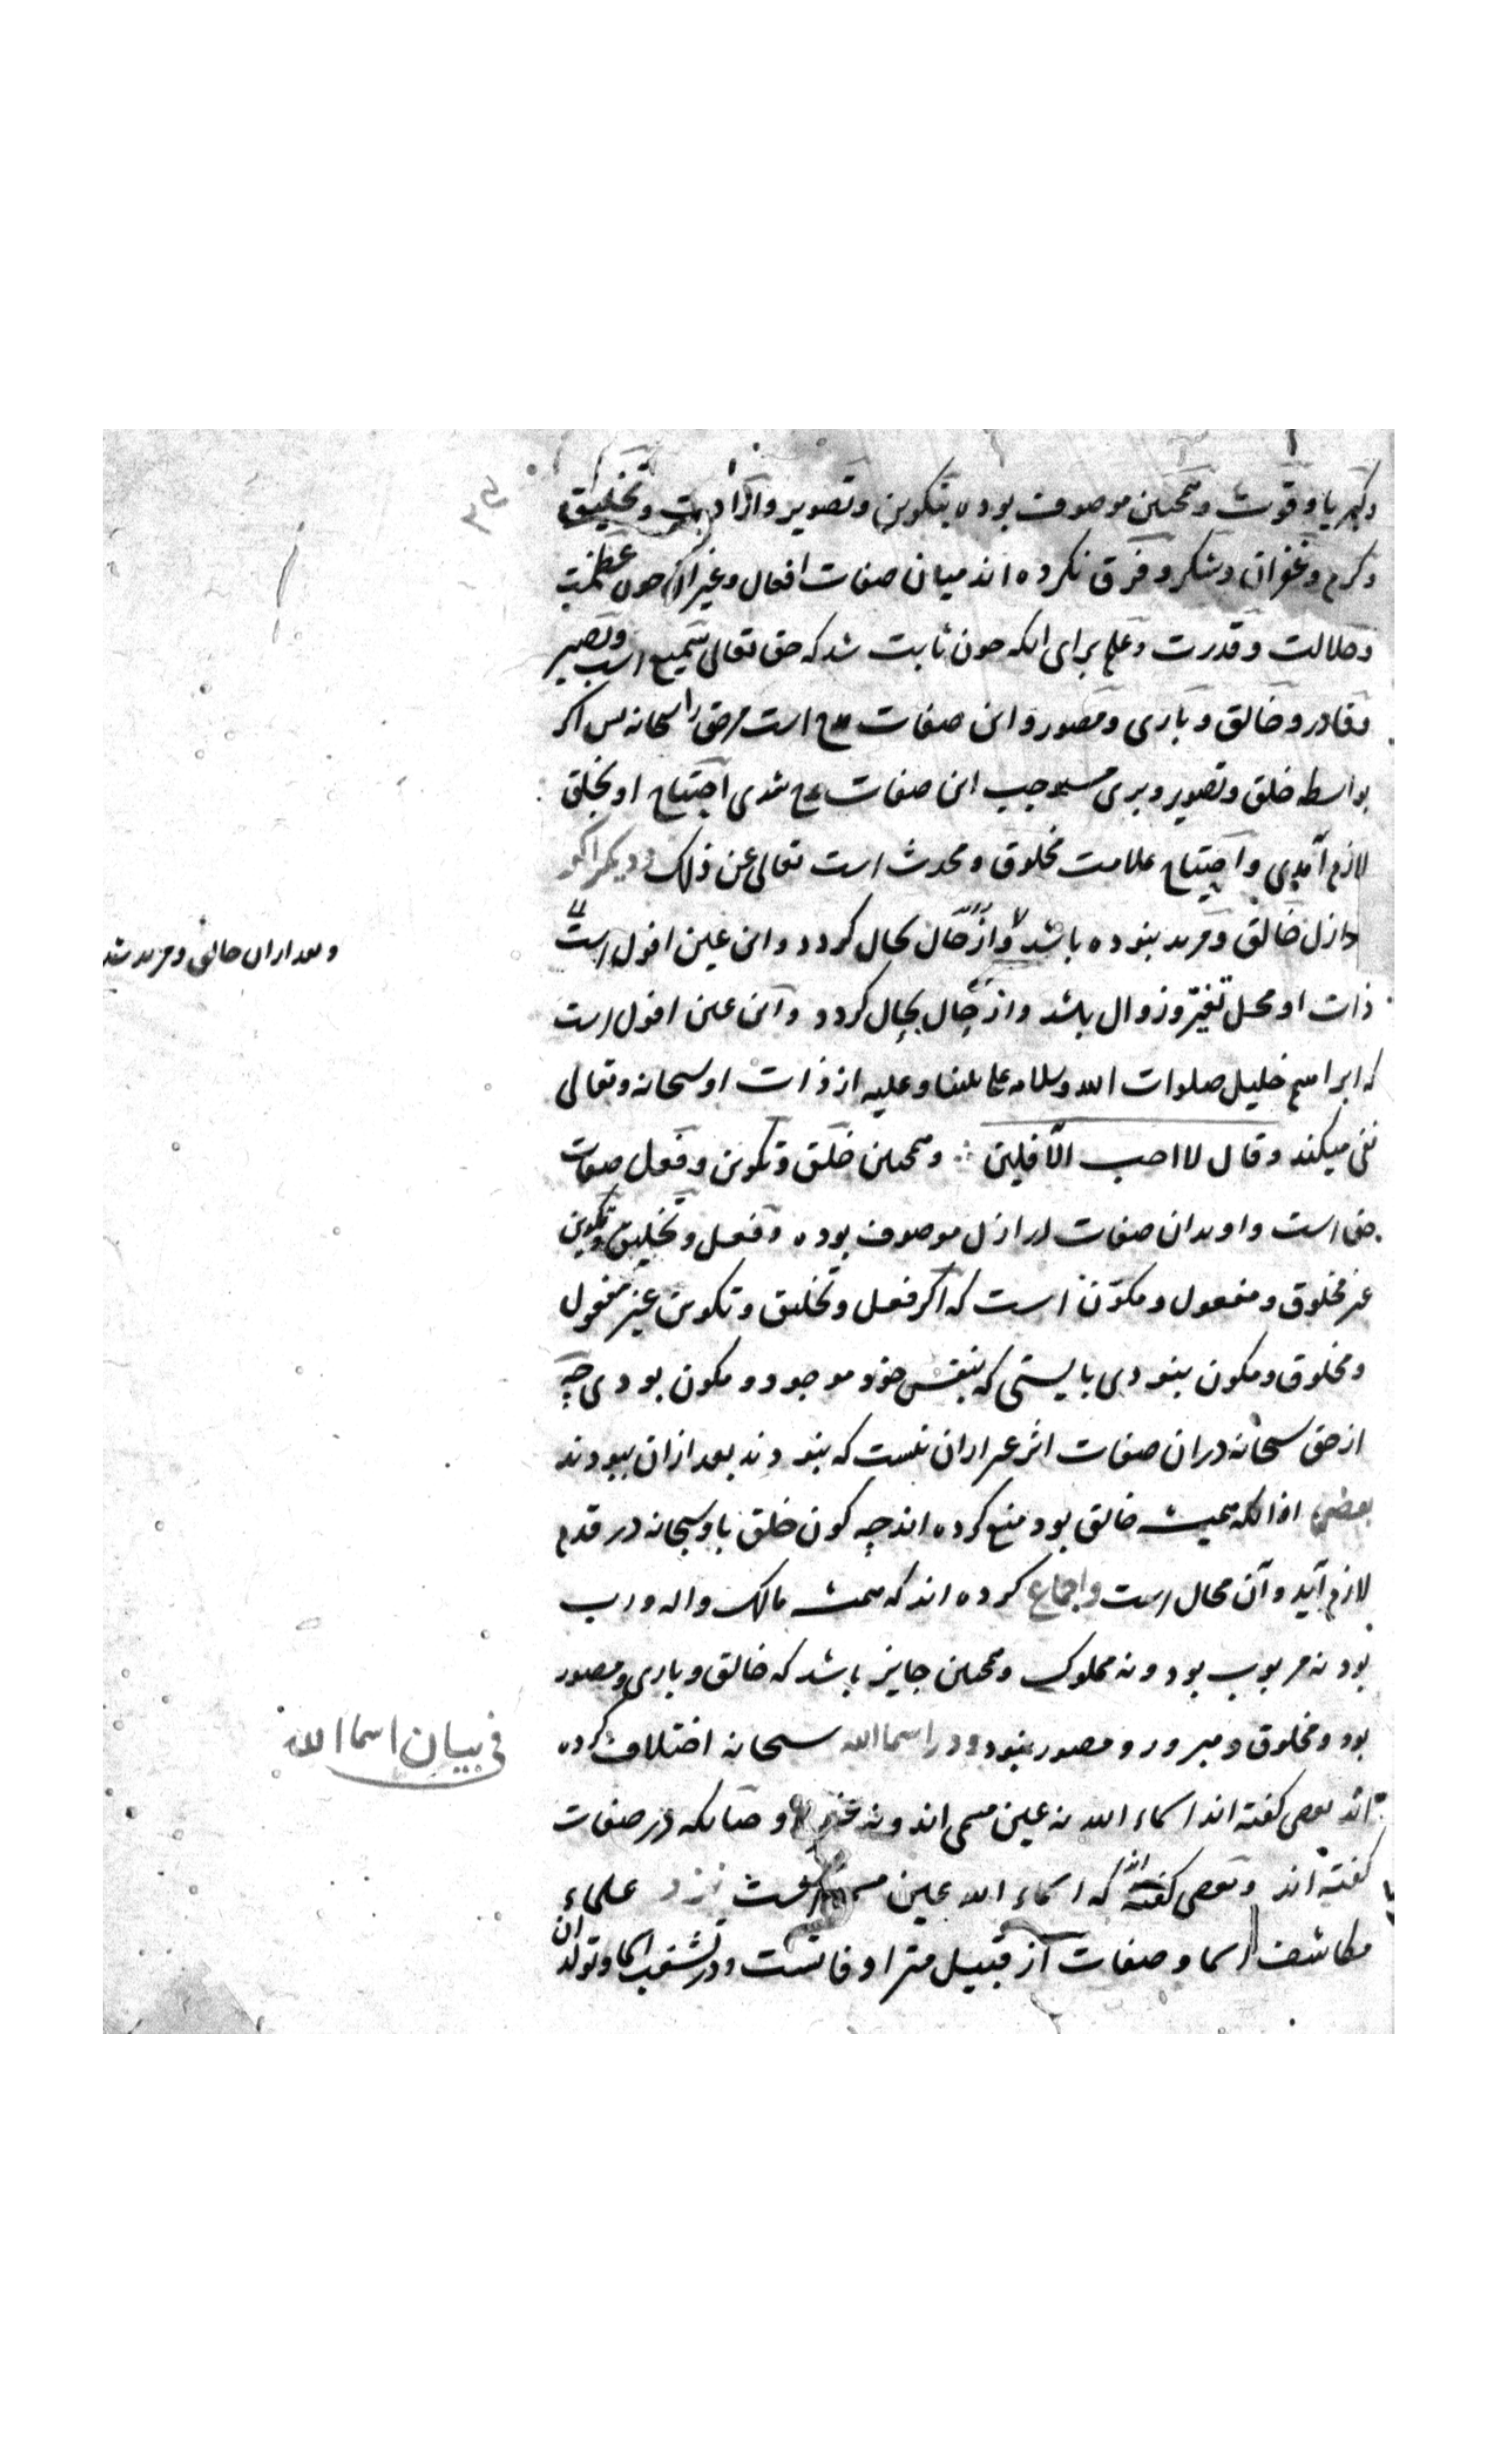 وکبریا و قوت و همچنین موصوف بوده بتکوین و تصویر و ارادت و تخلیق
و کرم و غفران و شکر و فرق نکرده اند میان صفات افعال و غیر آن چون عظمت
و جلالت و قدرت و علم برای انکه چون ثابت شد که حق تعالی سمیع است و بصیر
و قادر و خالق و باری و مصور و این صفات مدح است مر حق را سبحانه پس اگر
بواسطه خلق و تصویر و بری مستوجب این صفات مدح شدی احتیاج او بخلق
لازم آمدی و احتیاج علامت مخلوق و محدث است تعالی عن ذلک و دیگر اگر
در ازل خالق و مرید نبوده باشد و از حال بحال کردد و این عین افول است
و بعد ازان خالق و مرید شد
ذات او محل تغیر و زوال باشد و از حال بحال کردد و این عین افول است
که ابراهیم خلیل صلوات الله و سلامه علی نبینا و علیه از ذات او سبحانه و تعالی
نفی میکند و قال لا احب الآفلین و همچنین خلق و تکوین و فعل صفات
حق است و او بدان صفات در ازل موصوف بوده و فعل و تخلیق و تکوین
غیر مخلوق و مفعول و مکون است که اگر فعل و تخلیق و تکوین غیر مفعول
و مخلوق و مکون نبودی بایستی که بنفس خود موجود و مکون بودی چه
از حق سبحانه دران صفات اثر غیر ازان نیست که نبودند بعد ازان ببودند
بعضی ازانکه همیشه خالق بود منع کرده اند چه کون خلق با او سبحانه در قدم
لازم آید و آن محال است و اجماع کرده اند که همیشه مالک و اله و رب
بود نه مربوب بود و نه مملوک و همچنین جایز باشد که خالق و باری و مصور
بود و مخلوق و مبرور و مصور نبود و در اسما الله سبحانه اختلاف کرده
فی بیان اسما الله
اند بعضی گفته اند اسماء الله نه عین مسمی اند و نه غیر و چنانکه در صفات
گفته اند و بعضی گفته اند که اسماء الله عین مسمی است نزد علماء
مکاشف اسما و صفات از قبیل مترادفاتست و در تشعب اسما و تولد ان